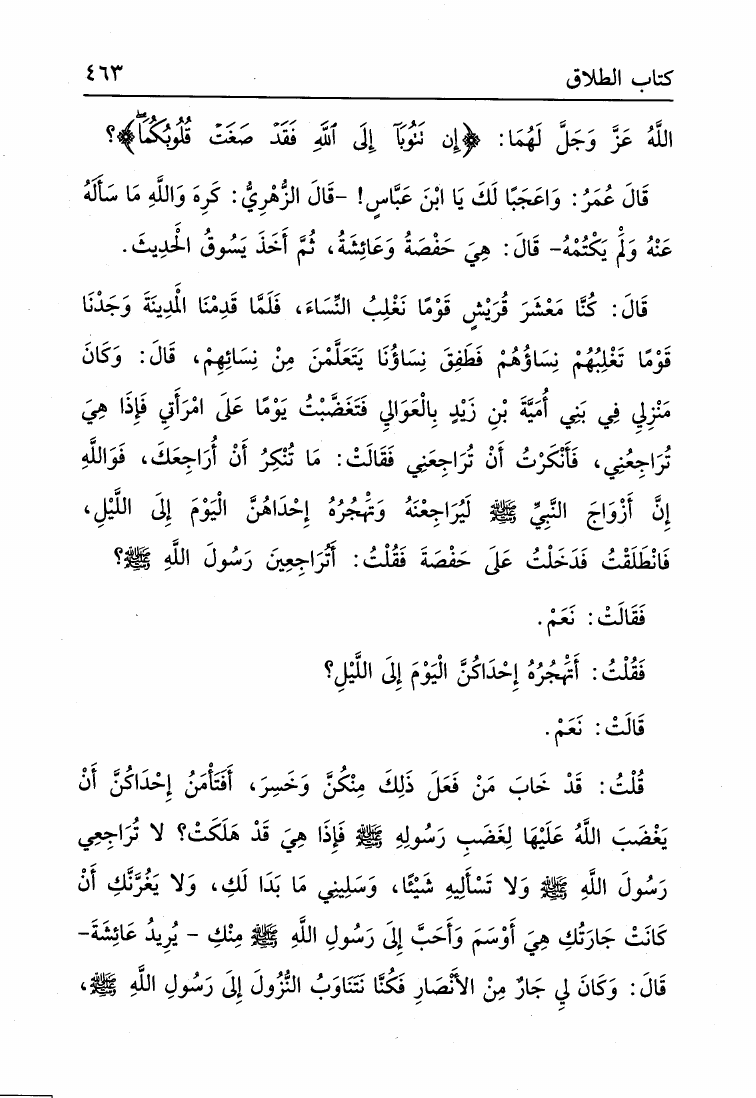 كتاب الطلاق ٤٦٣
اللَّهُ عَزَّ وَجَلَّ لَهُمَا: ﴿إِن تَتُوبَآ إِلَى ٱللَّهِ فَقَدۡ صَغَتۡ قُلُوبُكُمَاۖ﴾؟
قَالَ عُمَرُ: وَاعَجَبًا لَكَ يَا ابْنَ عَبَّاسٍ! -قَالَ الزُّهْرِيُّ: كَرِهَ وَاللَّهِ مَا سَأَلَهُ
عَنْهُ وَلَمْ يَكْتُمْهُ- قَالَ: هِيَ حَفْصَةُ وَعَائِشَةُ، ثُمَّ أَخَذَ يَسُوقُ الْحَدِيثَ.
قَالَ: كُنَّا مَعْشَرَ قُرَيْشٍ قَوْمًا نَغْلِبُ النِّسَاءَ، فَلَمَّا قَدِمْنَا الْمَدِينَةَ وَجَدْنَا
قَوْمًا تَغْلِبُهُمْ نِسَاؤُهُمْ فَطَفِقَ نِسَاؤُنَا يَتَعَلَّمْنَ مِنْ نِسَائِهِمْ، قَالَ: وَكَانَ
مَنْزِلِي فِي بَنِي أُمَيَّةَ بْنِ زَيْدٍ بِالْعَوَالِي فَتَغَضَّبْتُ يَوْمًا عَلَى امْرَأَتِي فَإِذَا هِيَ
تُرَاجِعُنِي، فَأَنْكَرْتُ أَنْ تُرَاجِعَنِي فَقَالَتْ: مَا تُنْكِرُ أَنْ أُرَاجِعَكَ، فَوَاللَّهِ
إِنَّ أَزْوَاجَ النَّبِيِّ ﷺ لَيُرَاجِعْنَهُ وَتَهْجُرُهُ إِحْدَاهُنَّ الْيَوْمَ إِلَى اللَّيْلِ،
فَانْطَلَقْتُ فَدَخَلْتُ عَلَى حَفْصَةَ فَقُلْتُ: أَتُرَاجِعِينَ رَسُولَ اللَّهِ ﷺ؟
فَقَالَتْ: نَعَمْ.
فَقُلْتُ: أَتَهْجُرُهُ إِحْدَاكُنَّ الْيَوْمَ إِلَى اللَّيْلِ؟
قَالَتْ: نَعَمْ.
قُلْتُ: قَدْ خَابَ مَنْ فَعَلَ ذَلِكَ مِنْكُنَّ وَخَسِرَ، أَفَتَأْمَنُ إِحْدَاكُنَّ أَنْ
يَغْضَبَ اللَّهُ عَلَيْهَا لِغَضَبِ رَسُولِهِ ﷺ فَإِذَا هِيَ قَدْ هَلَكَتْ؟ لا تُرَاجِعِي
رَسُولَ اللَّهِ ﷺ وَلا تَسْأَلِيهِ شَيْئًا، وَسَلِينِي مَا بَدَا لَكِ، وَلا يَغُرَّنَّكِ أَنْ
كَانَتْ جَارَتُكِ هِيَ أَوْسَمَ وَأَحَبَّ إِلَى رَسُولِ اللَّهِ ﷺ مِنْكِ - يُرِيدُ عَائِشَةَ-
قَالَ: وَكَانَ لِي جَارٌ مِنْ الأَنْصَارِ فَكُنَّا نَتَنَاوَبُ النُّزُولَ إِلَى رَسُولِ اللَّهِ ﷺ،